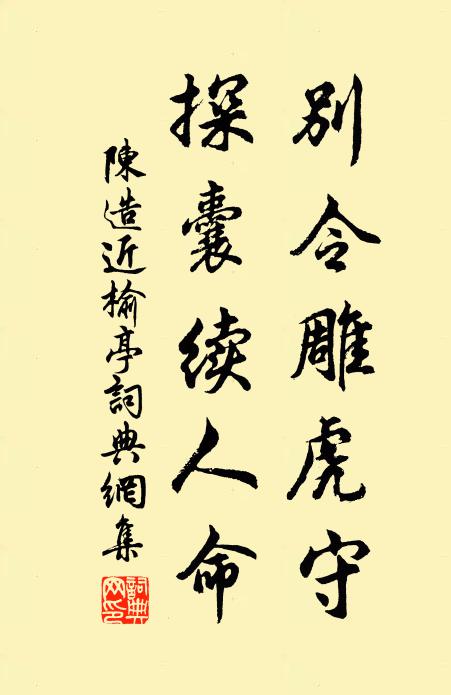 別令雕虎守
探囊续人命
陳造近榆亭詞典網集
詞典网印